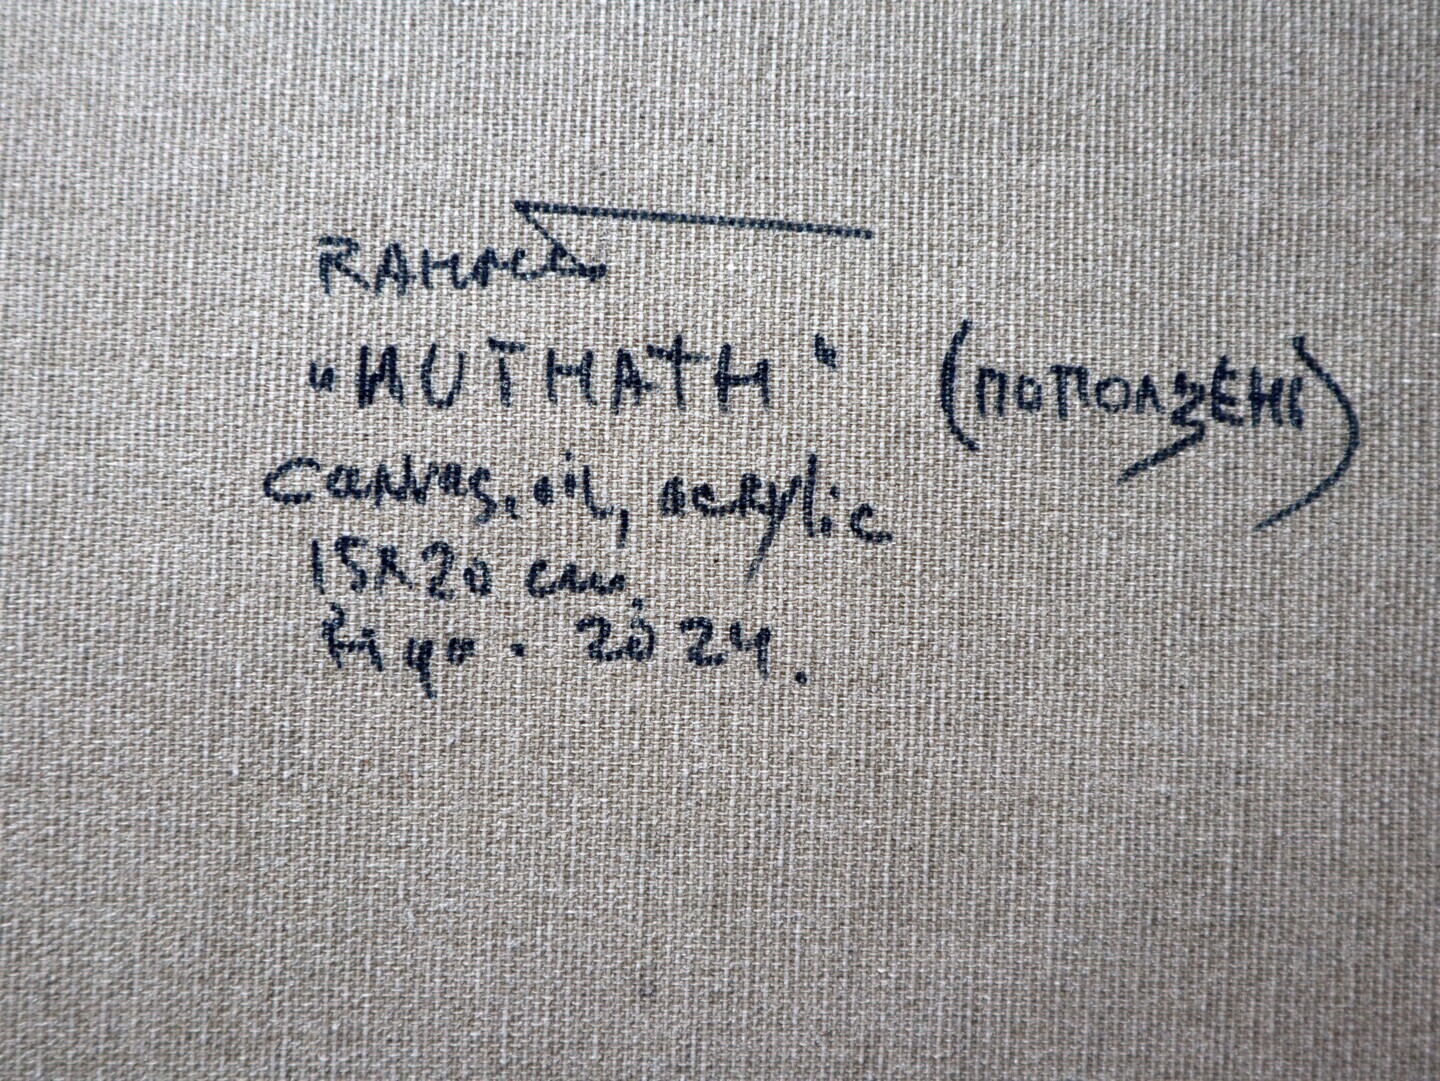 "NUTHATH" (ПОПОЛЗЕНЬ)
canvas, oil, acrylic
15x20 cm,
2024.